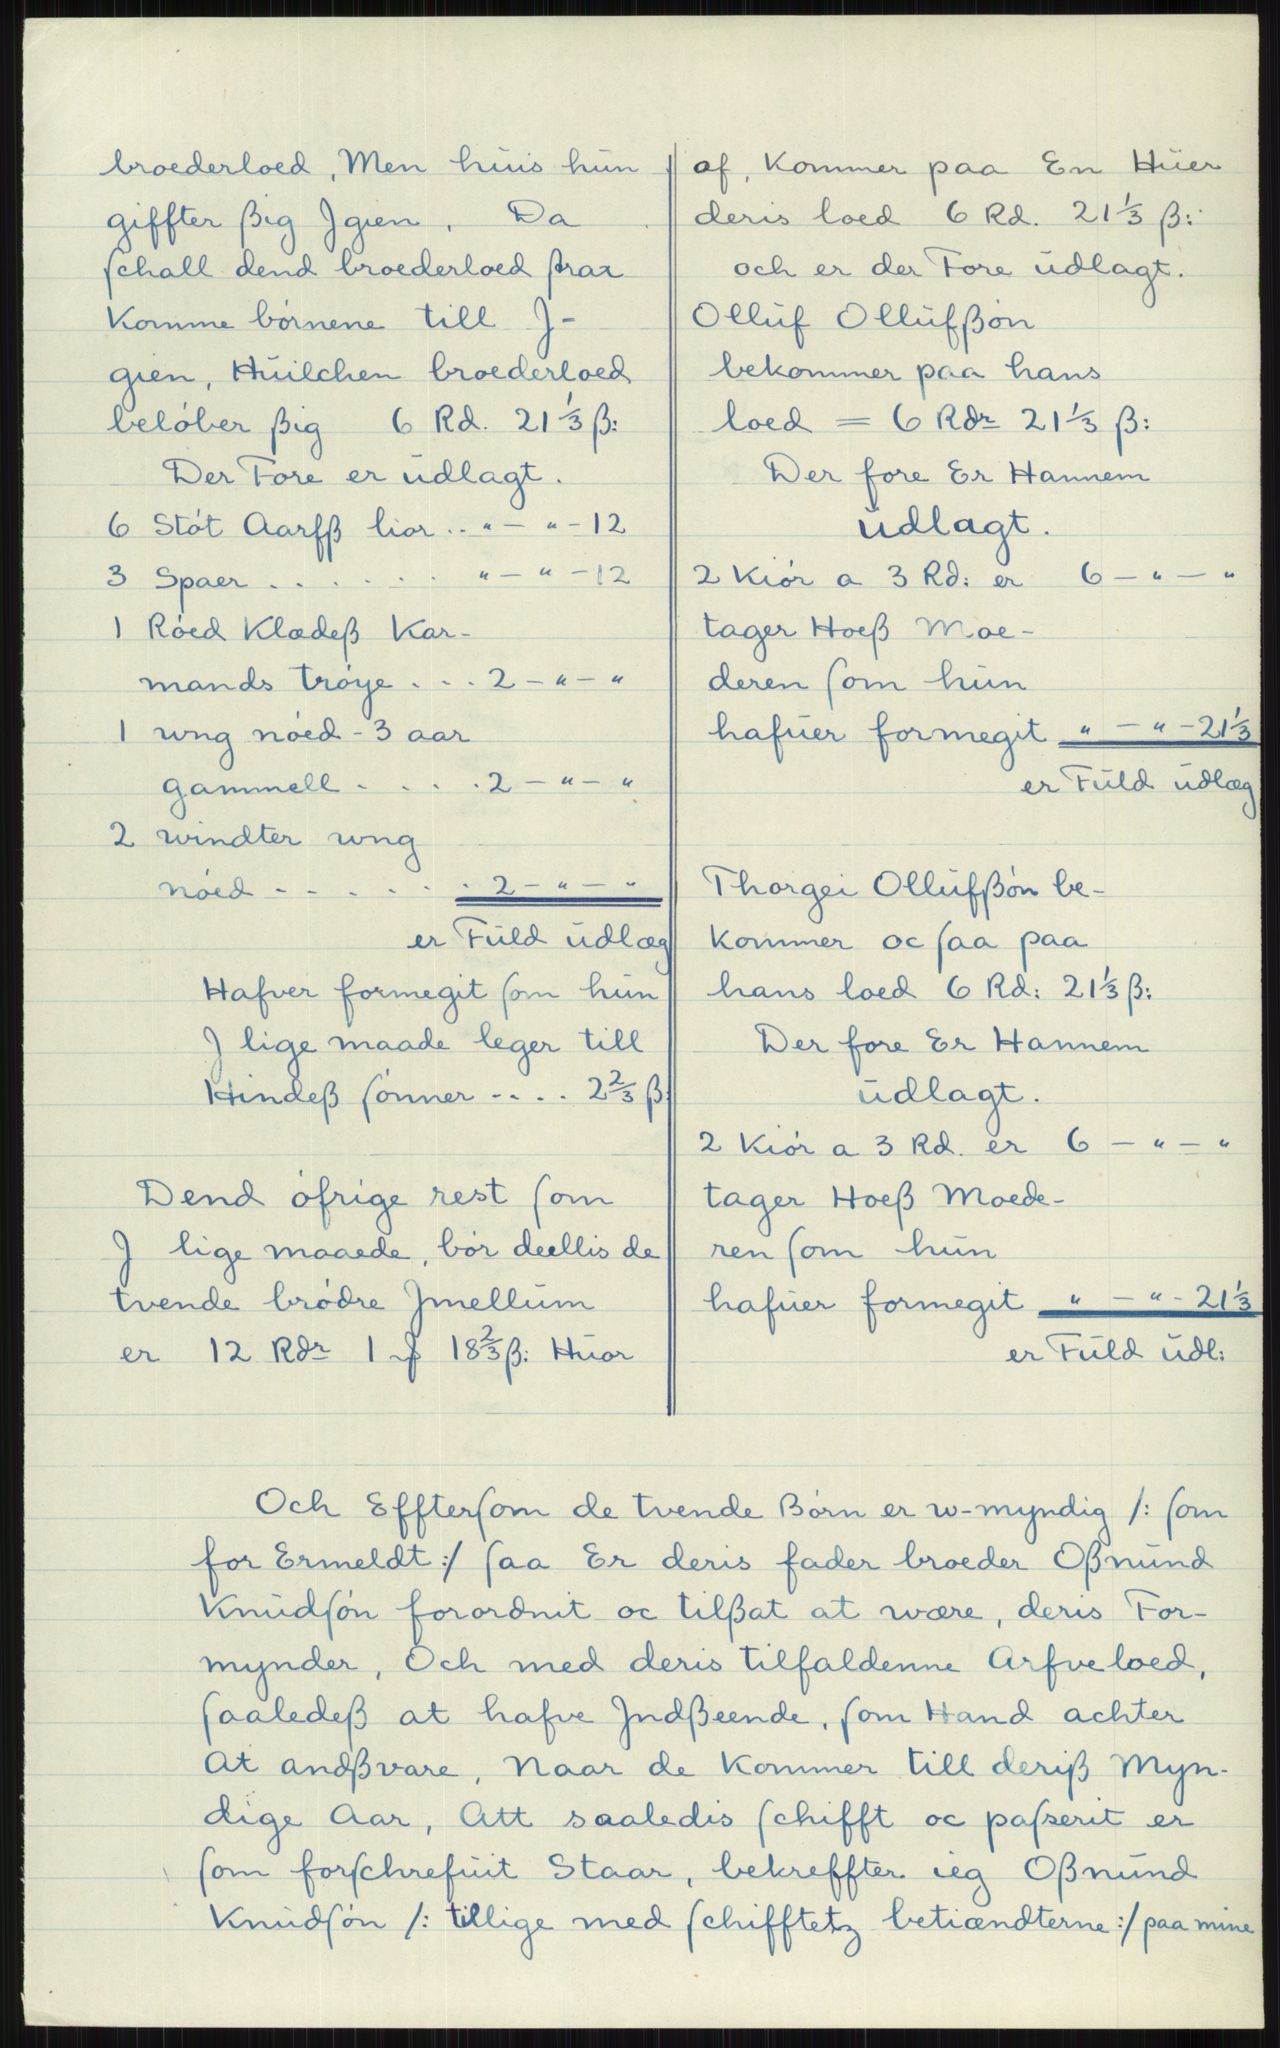 broederloed, Men huis hun
giffter ßig Jgien, Da
schall dend broederloed strax
Komme børnene till J-
gien, Huilchen broederloed
beløber ßig 6 Rd. 21 1/3 ß:
Der Fore er udlagt.
6 Støt Aarfß lior .. " - " - 12
3 Spaer . . . . . . " - " - 12
1 Røed Klædeß Kar-
mands trøye . . . 2 - " - "
1 ung nøed - 3 aar
gammell . . . . 2 - " - "
2 windter ung
nøed . . . . . . 2 - " - "
er Fuld udlæg
Hafver formegit som hun
J lige maade leger till
Hindeß sønner .... 2 2/3 ß:
Dend øfrige rest som
J lige maaede, bør deellis de
tvende brødre Jmellum
er 12 Rdr 1 # 18 2/3 ß: Huor
af, Kommer paa En Huer
deris loed 6 Rd. 21 1/3 ß:
och er der Fore udlagt.
Olluf Ollufßøn
bekommer paa hans
loed = 6 Rdr 21 1/3 ß:
Der fore Er Hannem
udlagt.
2 Kiør a 3 Rd: er 6 - " - "
tager Hoeß Moe-
deren som hun
hafuer formegit " - " - 21 1/3
er Fuld udlæg
Thorgei Ollufßøn be-
kommer oc saa paa
hans loed 6 Rd: 21 1/3 ß:
Der fore Er Hannem
udlagt.
2 Kiør a 3 Rd. er 6 - " - "
tager Hoeß Moede-
ren som hun
hafuer formegit " - " - 21 1/3
er Fuld udl:
Och Efftersom de tvende Børn er w-myndig /: som
for Ermeldt :/ saa Er deris fader broeder Oßnund
Knudsøn forordnit oc tilßat at wære, deris For-
mynder, Och med deris tilfaldenne Arfveloed,
saaledeß at hafve Jndßeende, som Hand achter
At andßvare, Naar de Kommer till deriß Myn-
dige Aar, Att saaledis schifft oc passerit er
som forschrefuit Staar, bekreffter ieg Oßnund
Knudsøn /: tillige med schifftetz betiændterne :/ paa mine